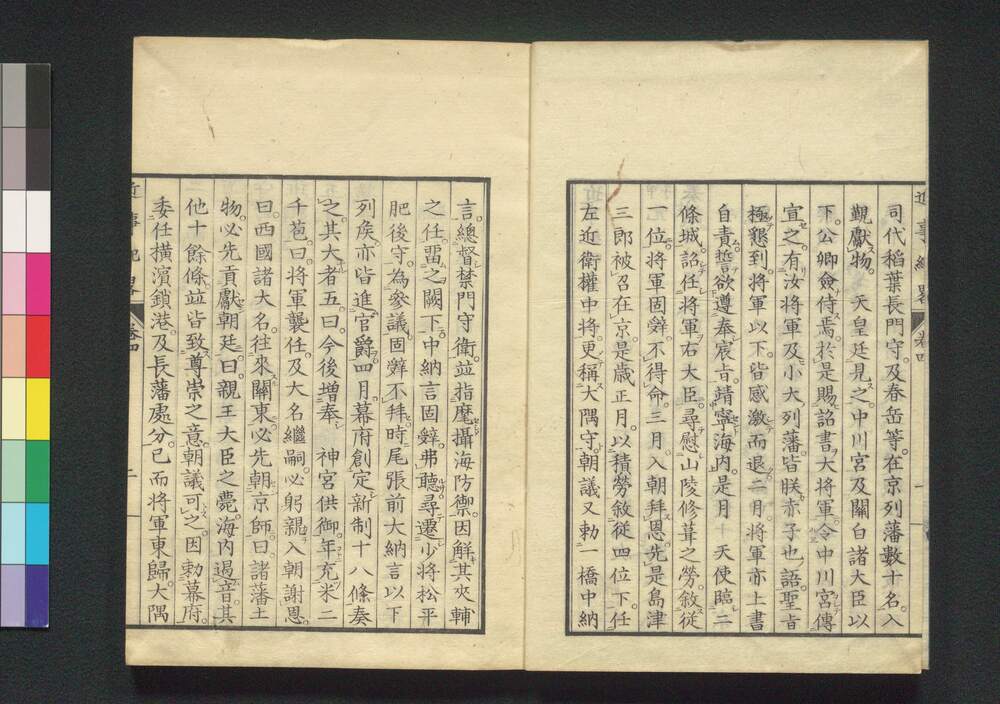 司代稻葉長門守及春岳等在京列藩數十名入
觀獻物。　天皇廷見之中川宮及關白諸大臣以
下公卿僉侍焉。於是賜詔書大將軍。令中川宮傳
宣之。有汝將軍及小大列藩皆朕赤子也語。聖旨
極懇到將軍以下皆感激而退。二月將軍亦上書
自責誓欲遵奉宸旨靖寧海内。是月　天使臨二
條城。詔任將軍右大臣。尋慰山陵修葺之勞。敘從
一位。將軍固辭。不得命。三月入朝拜恩。先是島津
三郎被召在京。是歲正月。以積勞敘從四位下。任
左近衛權中將。更稱大隅守。朝議又勅一橋中納
言。總督禁門守衛。並指麾攝海防禦。因解其夾輔
之任。留之闕下。中納言固辭。弗聽。尋遷少將松平
肥後守。為參議。固辭不拜。時尾張前大納言以下
列矦亦皆進官爵。四月幕府創定新制十八條奏
之。其大者五。曰。今後增奉　神宮供御。年充米二
千苞。曰。將軍襲任。及大名繼嗣。必躬親入朝謝恩。
曰。西國諸大名往來關東。必先朝京師。曰。諸藩土
物。必先貢獻朝廷。曰。親王大臣之薨。海内遏音。其
他十餘條。並皆致尊崇之意。朝議可之。因勅幕府。
委任橫濱鎖港。及長藩處分。已而將軍東歸。大隅
卷四
二